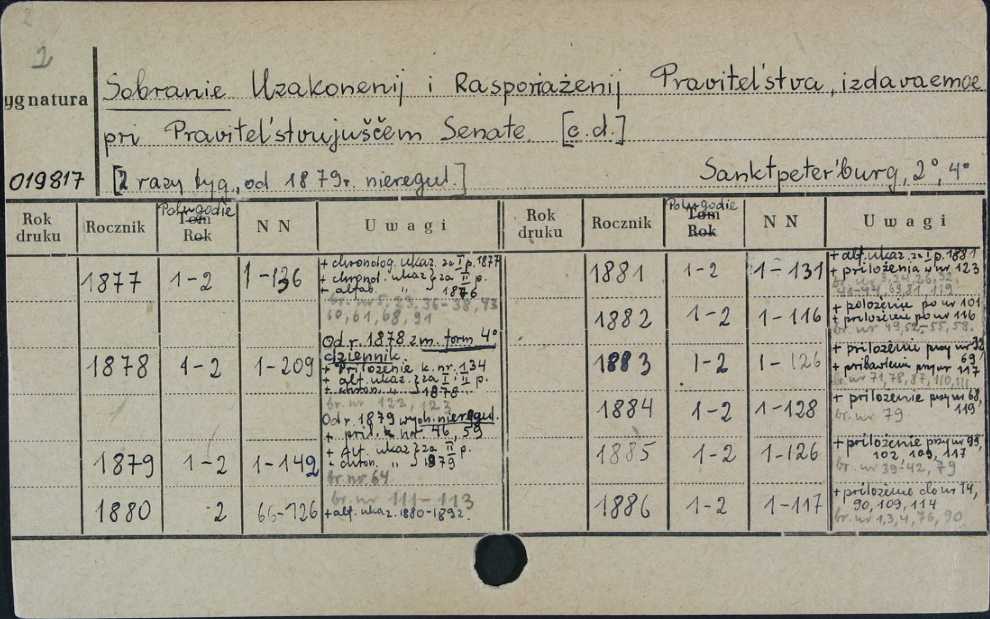 2
Sobranie Uzakonenij i Rasporiaženij Pravitel'stva, izdavaemoe
ygnatura
pri Pravitel'stvujuščem Senate. [c.d.]
019817
[2 razy tyg., od 1879r. nieregul.]
Sanktpeterburg, 2°, 4°
Rok druku
Rocznik
Polugodie
Tom
Rok
N N
Uwagi
Rok druku
Rocznik
Polugodie
Tom
Rok
N N
Uwagi
1877 1-2 1-136
+ chronolog. ukaz. za I p. 1877
+ chronol. ukaz } za II p.
+ alfab. " } 1876
br. nr 5, 23, 36-38, 43
60, 61, 68, 91
1878 1-2 1-209
Od r. 1878 zm. form 4°
dziennik.
+ priloženie k. nr. 134
+ alf. ukaz. } za I i II p.
+ chron. " } 1878
br. nr 122, 123
1879 1-2 1-149
Od r. 1879 wych. nieregul.
+ pril. k nr. 46, 59
+ Alf. ukaz } za II p.
+ chron. " } 1879
br. nr. 64
1880 2 66-126
br. nr 111-113
+ alf. ukaz. 1880-1892.
1881 1-2 1-131
+ alf. ukaz. za I p. 1881
+ priloženia w nr 123
1882 1-2 1-116
+ položenie po nr 101
+ priloženie po nr 116
br. nr 49, 52-55, 58.
1883 1-2 1-126
+ priloženie przy nr 32
69
+ pribavlenie przy nr 117
br. nr 71, 78, 87, 110, 111
1884 1-2 1-128
+ priloženie przy nr 68,
119
br. nr 79
1885 1-2 1-126
+ priloženie przy nr 93,
102, 109, 117
br. nr 39-42, 79
1886 1-2 1-117
+ priloženie do nr 14,
90, 109, 114
br. nr 1, 3, 4, 76, 90